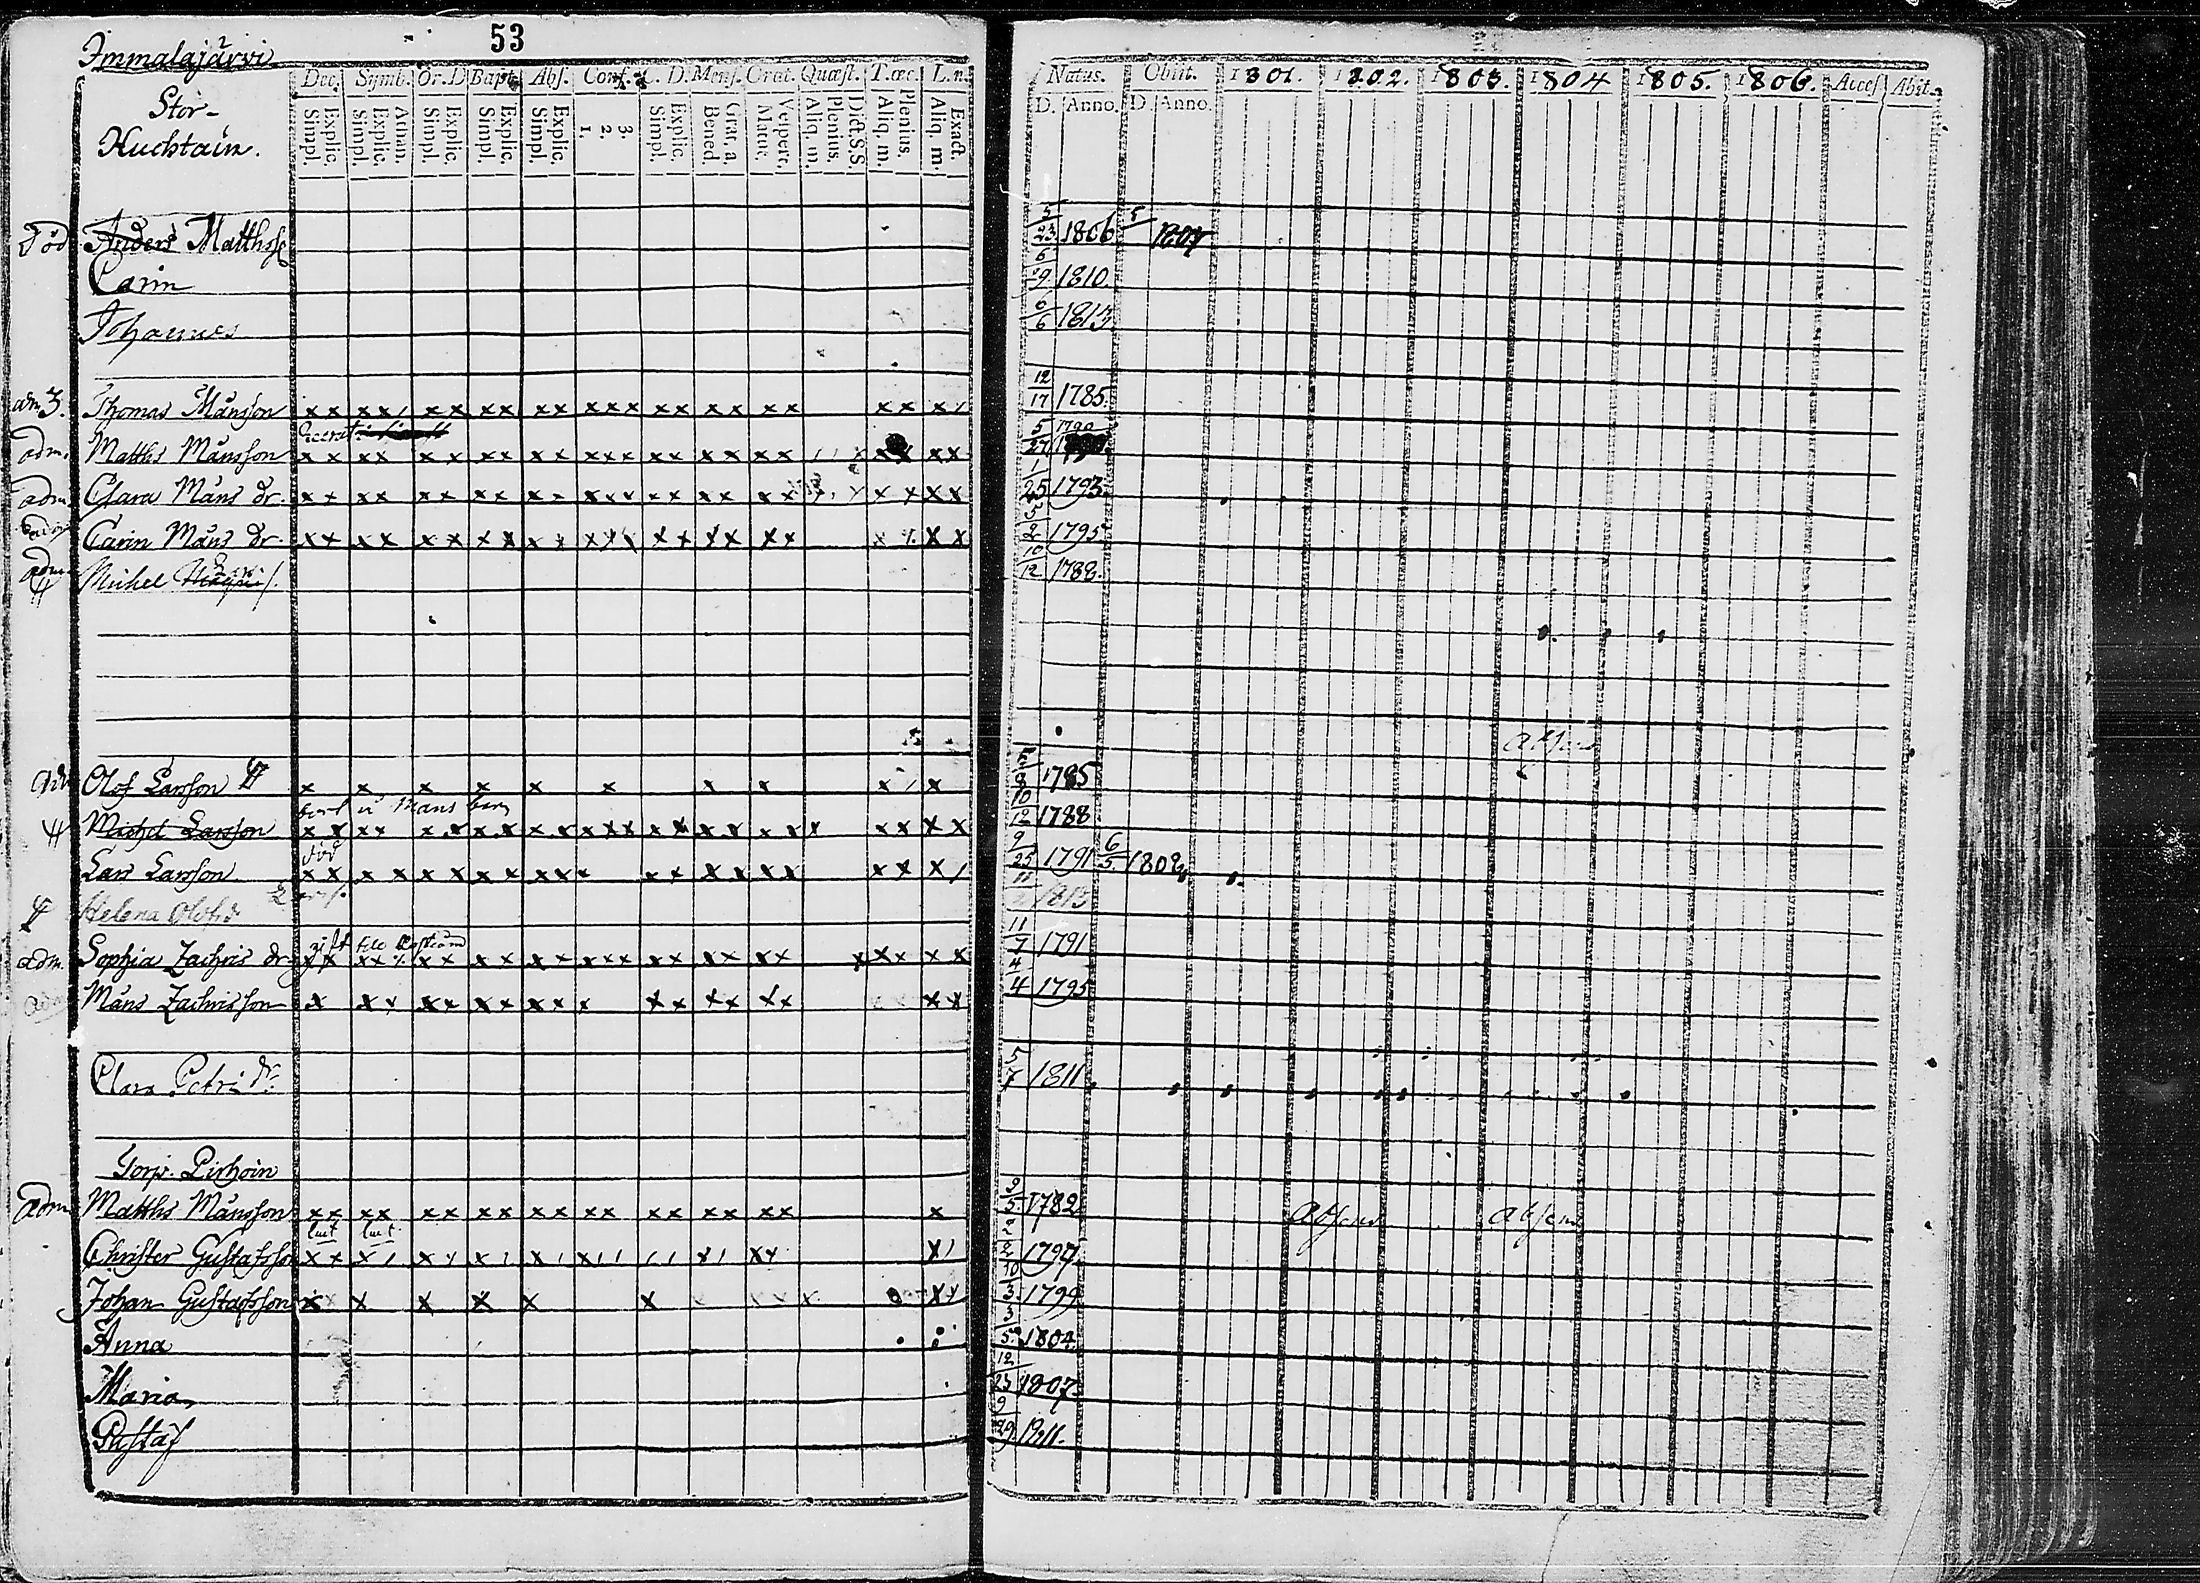 53
Immalajärvi
Stor-
Huchtain.
Dec. Symb. Or. D. Bapt. Abs. Conf. C. D. Mens. Orat. Quæst. T. œc. L. n.
Simpl. Explic. Simpl. Explic. Athan. Simpl. Explic. Simpl. Explic. Simpl. Explic. 1. 2. 3. Simpl. Explic. Bened. Grat. a. Matut. Vespert. Aliq. m. Plenius. Dict. S.S. Aliq. m. Plenius. Aliq. m. Exact.
Natus. Obiit. 1801. 1802. 1803. 1804 1805. 1806. Acces Abit.
D. Anno. D. Anno.
död Anders Matthss 5/23 1806 5/ 1807
Carin 6/29 1810.
Johannes 6/6 1813
adm. 3. Thomas Månsson x x x x / x x x x x x x x x x x x x x x x x x x / 12/17 1785.
adm. Matths Månsson x x x x x x x x x x x x x x x x x x x x x x x x 5/27 1790
adm Clara Måns dr x x x x x x x x x x x x x x x x x x x x x x x 1/25 1793.
Carin Måns dr x x x x x x x x x x x x x x x x x x x x x x x 5/2 1795
adm Michel 10/12 1788.
absens
Olof Larsson x x x x x x x x x / x 5/8 1785
bort
Michel Larsson x x x x x x x x x x x x x x x x x x x x x x x x 10/12 1788
död
Lars Larsson x x x x x x x x x x x x x x x x x x x x / 9/25 1791 6/5 1808
Helena Olofsd 11/ 1813
gift
adm. Sophia Zachris dr x x x x x x x x x x x x x x x x x x x x x x x x x 11/7 1791
Måns Zachrisson x x x x x x x x x x x x x x x x x x 4/4 1795
Clara Petri dr 5/7 1811
Torp. Pirhoin
Adm Matths Månsson x x x x x x x x x x x x x x x x x x x 9/5 1782 absens absens
lut lut
Christer Gustafsson x x x / x x x / x / x / / / / x / x x x / 2/2 1797.
Johan Gustafsson x x x x x x x x 10/3 1799
Anna 3/5 1804.
Maria 12/23 1807.
Gustaf 9/29 1811.